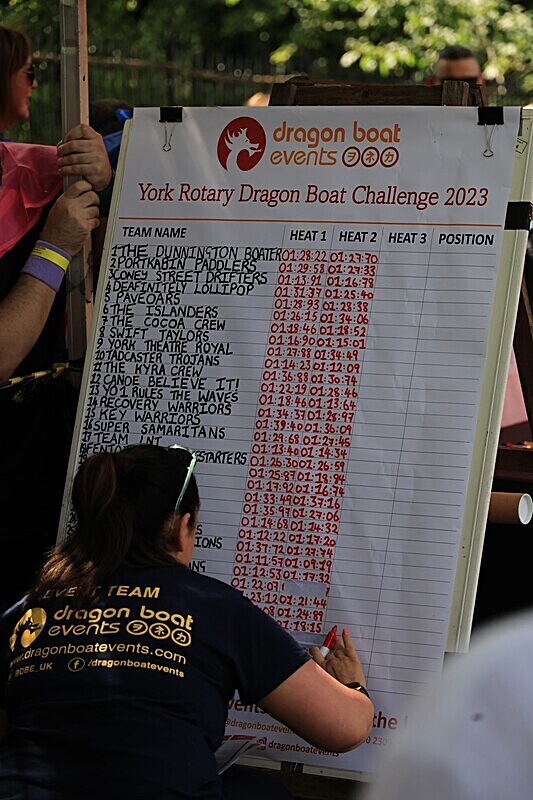 dragon boat
events ヲネカ
York Rotary Dragon Boat Challenge 2023
TEAM NAME HEAT 1 HEAT 2 HEAT 3 POSITION
1 THE DUNNINGTON BOATER 01:28:22 01:27:70
2 PORTKABIN PADDLERS 01:29:58 01:27:33
3 CONEY STREET DRIFTERS 01:13:91 01:16:78
4 DEAFINITELY LOLLIPOP 01:31:37 01:25:40
5 PAVEOARS 01:28:93 01:28:38
6 THE ISLANDERS 01:26:15 01:34:06
7 THE COCOA CREW 01:18:46 01:18:52
8 SWIFT TAYLORS 01:16:90 01:15:01
9 YORK THEATRE ROYAL 01:27:88 01:34:49
10 TADCASTER TROJANS 01:14:23 01:12:09
11 THE KYRA CREW 01:36:88 01:30:74
12 CANOE BELIEVE IT! 01:22:19 01:28:46
13 YO1 RULES THE WAVES 01:18:46 01:18:64
14 RECOVERY WARRIORS 01:34:37 01:28:97
15 KEY WARRIORS 01:39:40 01:36:09
16 SUPER SAMARITANS 01:29:68 01:27:45
17 TEAM LNT 01:13:40 01:14:34
01:26:30 01:26:59
01:25:87 01:19:84
01:17:92 01:16:74
01:33:49 01:37:16
01:35:97 01:27:06
01:14:68 01:14:32
01:12:22 01:17:20
01:37:72 01:27:74
01:11:57 01:09:19
01:12:53 01:17:32
01:22:07
23:12 01:21:44
08 01:24:89
01:18:15
EVENT TEAM
dragon boat
events ヲネカ
www.dragonboatevents.com
@DBE_UK /dragonboatevents
@dragonboatevents
dragonboatevents